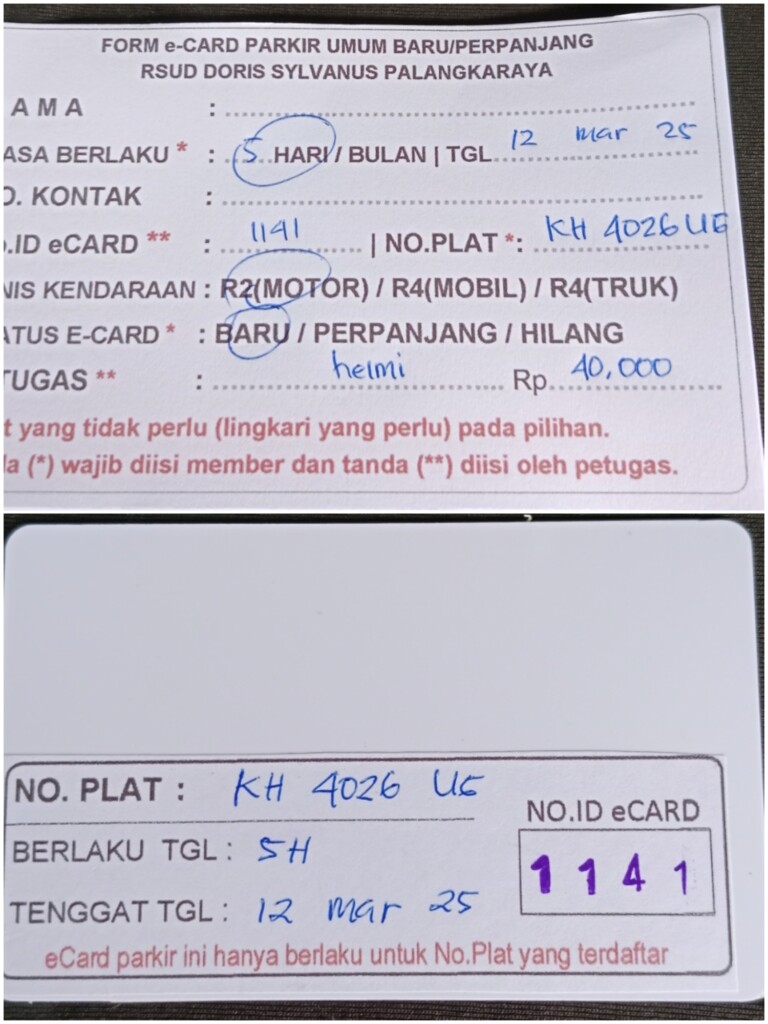 FORM e-CARD PARKIR UMUM BARU/PERPANJANG
RSUD DORIS SYLVANUS PALANGKARAYA
AMA :
ASA BERLAKU * : 5 HARI / BULAN | TGL 12 mar 25
O. KONTAK :
.ID eCARD ** : 1141 | NO.PLAT *: KH 4026 UE
NIS KENDARAAN : R2(MOTOR) / R4(MOBIL) / R4(TRUK)
ATUS E-CARD * : BARU / PERPANJANG / HILANG
TUGAS ** : helmi Rp 40,000
t yang tidak perlu (lingkari yang perlu) pada pilihan.
a (*) wajib diisi member dan tanda (**) diisi oleh petugas.
NO. PLAT : KH 4026 UE
NO.ID eCARD
BERLAKU TGL : 5H
1141
TENGGAT TGL : 12 mar 25
eCard parkir ini hanya berlaku untuk No.Plat yang terdaftar